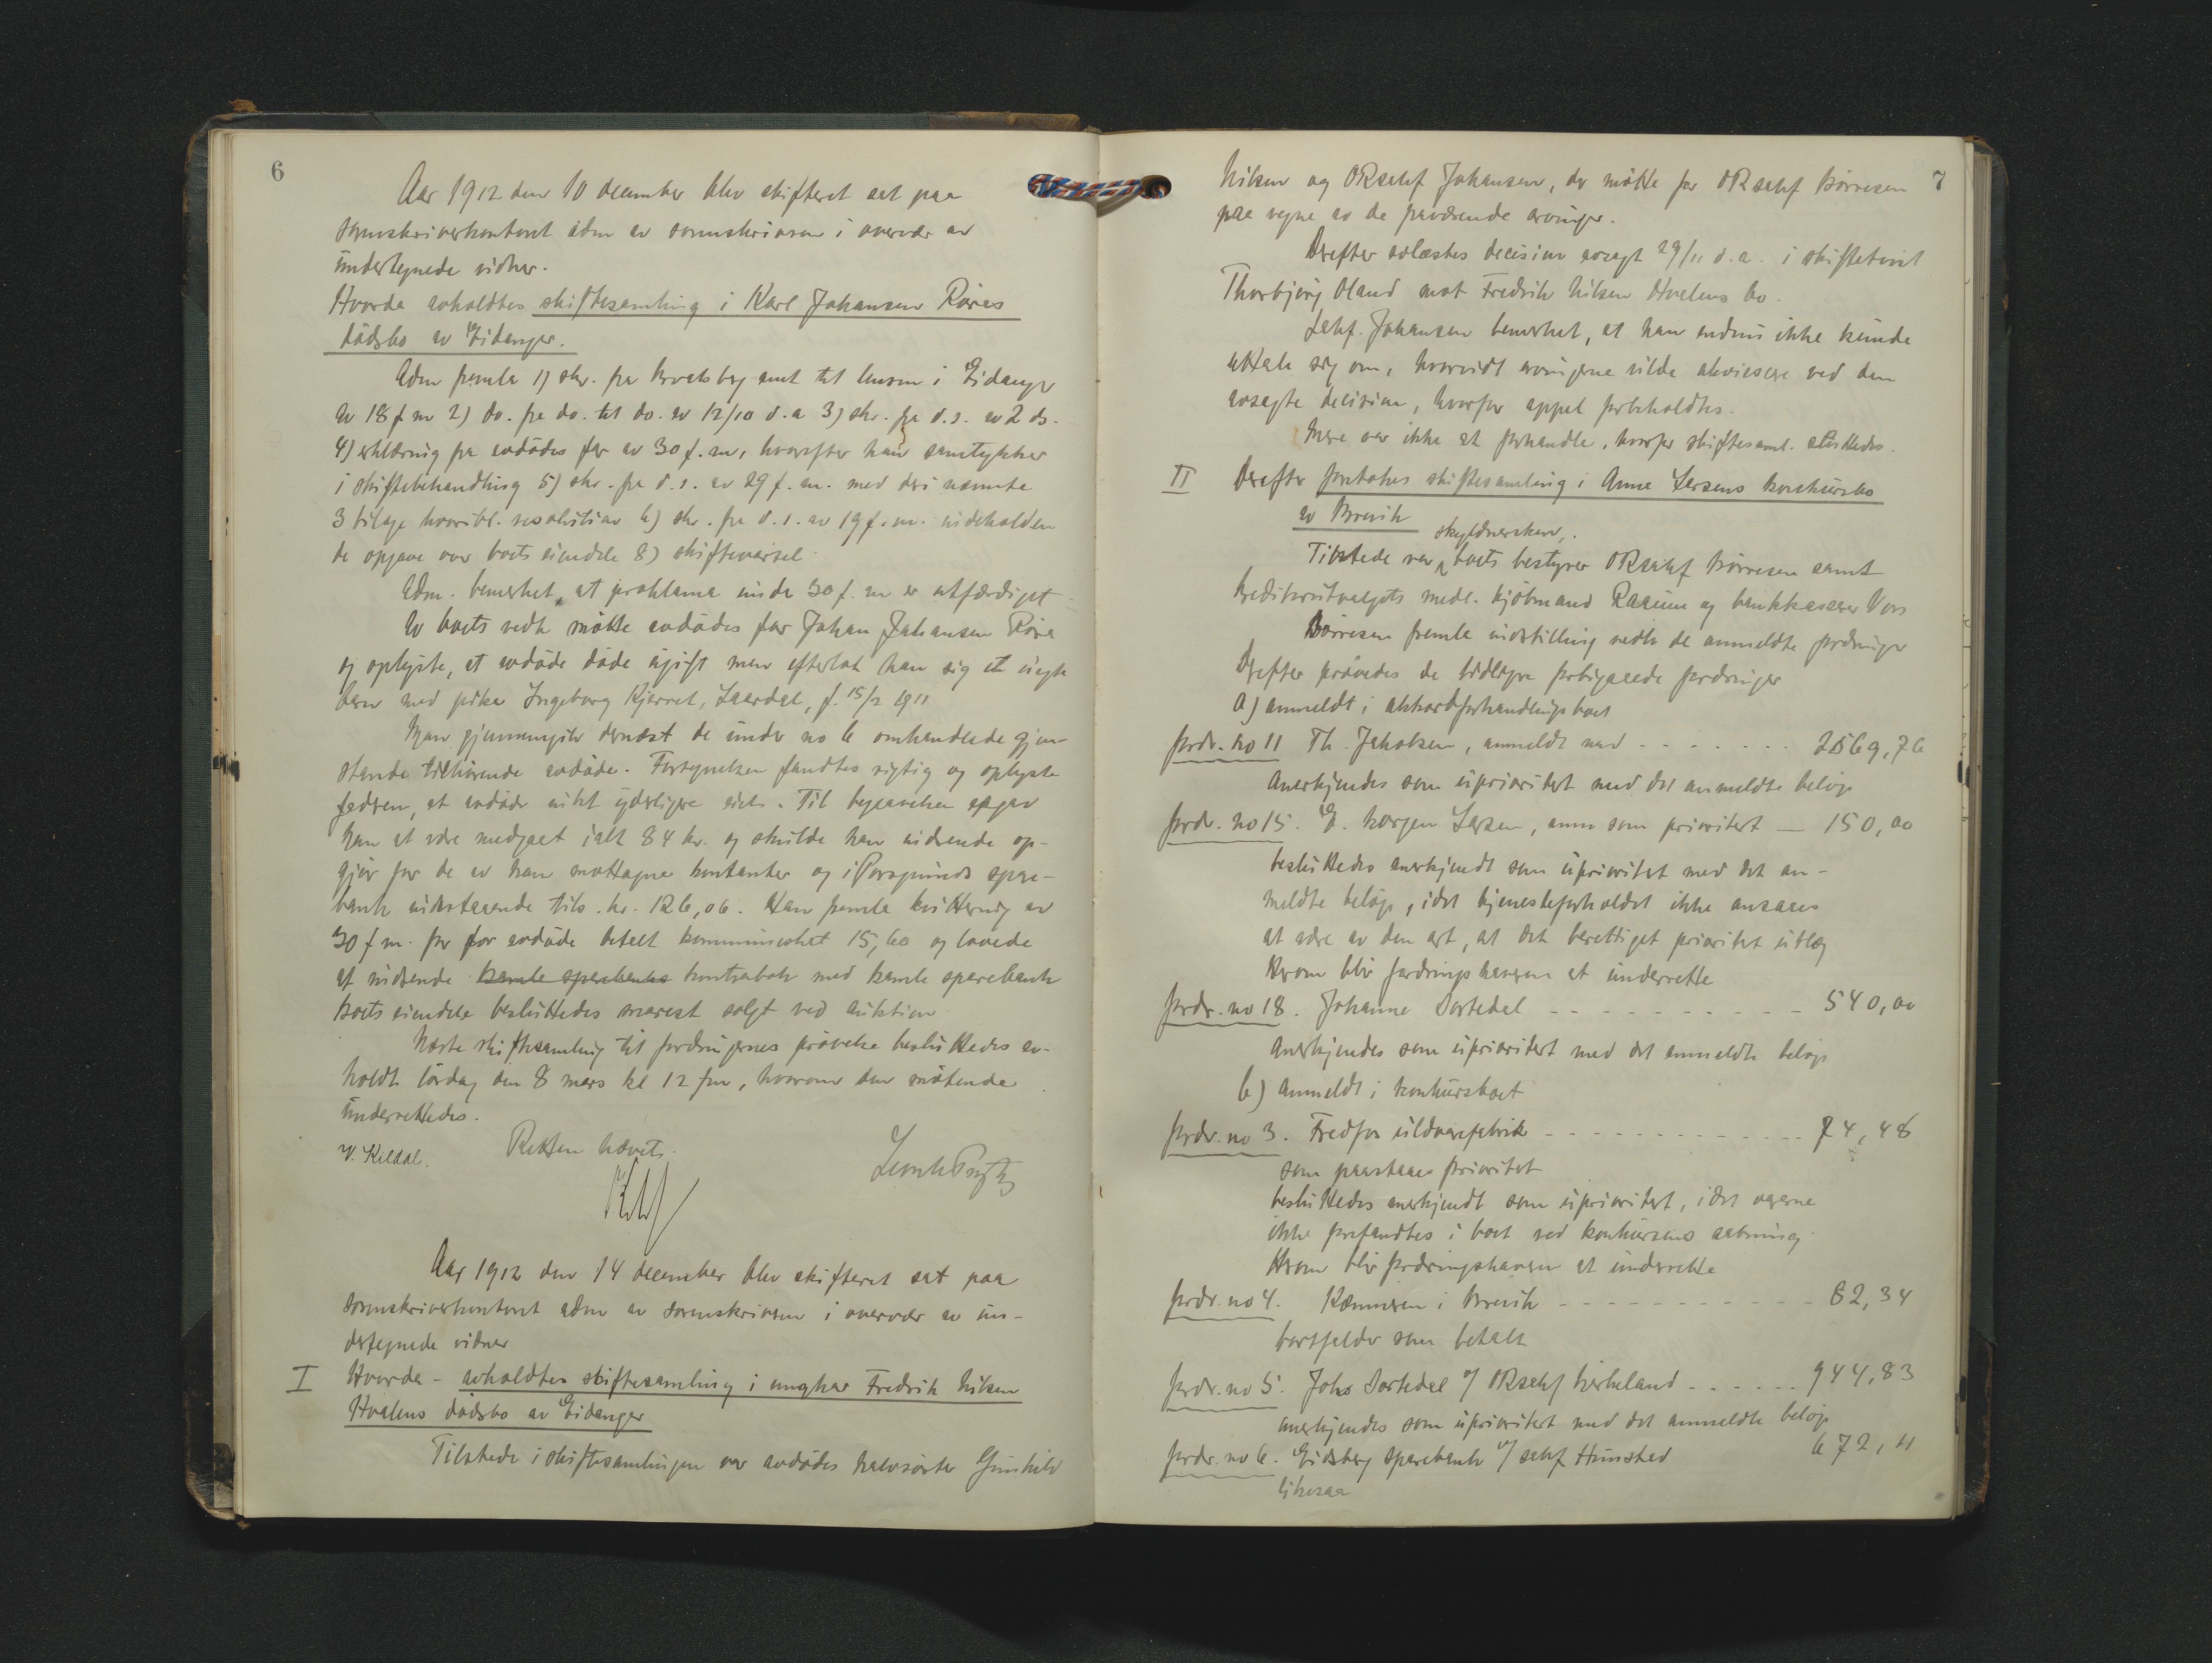 6
Aar 1912 den 10 december blev skifteret sat paa
sorenskriverkontoret adm av sorenskriveren i overvær av
undertegnede vidner.
Hvorda avholdtes skiftesamling i Karl Johansen Røras
dødsbo av Eidanger.
Adm fremla 1) skr. fra Bratsberg amt til lensm i Eidanger
av 18 f m 2) do. fra do. til do. av 12/10 d.a 3) skr. fra d.s. av 2 ds.
4) erklæring fra avdødes far av 30 f.m, hvorefter han samtykker
i skiftebehandling 5) skr. fra d.s. av 29 f.m. med deri nævnte
3 bilage hvoribl. resolution 6) skr. fra d.s. av 19 f.m. indeholden
de opgave over boets eiendele 8) skiftevarsel.
Adm. bemerket, at proklama under 30 f.m er utfærdiget
Av boets vedk møtte avdødes far Johan Johansen Røra
og oplyste, at avdøde døde ugift men efterlot han sig et uegte
barn med pike Ingeborg Kjerret, Laardal, f. 15/2 1911
Man gjennemgik dernæst de under no 6 omhandlede gjen-
stande tilhørende avdøde. Fortegnelsen fandtes rigtig og oplyste
faderen, at avdøde intet yderligere eiet. Til begravelsen opgav
han at være medgaat ialt 84 kr. og skulde han indsende op-
gjør for de av han mottagne kontanter og i Porsgrunds spare-
bank indestaaende tils. kr. 126,06. Han fremla kvittering av
30 f m. for for avdøde betalt kommuneskat 15,60 og lovede
at indsende bamle sparebanks kontrabok med bamle sparebank
Boets eiendele besluttedes snarest solgt ved auktion
Næste skiftesamling til fordringernes prøvelse besluttedes av-
holdt lørdag den 8 mars kl 12 fm, hvorom den møtende
underrettedes.
Retten hævet.
V. Kildal.
Aar 1912 den 14 december blev skifteret sat paa
sorenskriverkontoret adm av sorenskriveren i overvær av un-
dertegnede vidner
I Hvorda - avholdtes skiftesamling i ungkar Fredrik Nilsen
Hvalens dødsbo av Eidanger
Tilstede i skiftesamlingen var avdødes halvsøster Gunhild
7
Nilsen og ORsakf Johansen, der møtte for ORsakf Børresen
paa vegne av de fraværende arvinger.
Derefter oplæstes decision avsagt 29/11 d.a. i skiftetvist
Thorbjørg Oland mot Fredrik Nilsen Hvalens bo.
Sakf. Johansen bemerket, at han endnu ikke kunde
uttale sig om, hvorvidt arvingerne vilde akviescere ved den
avsagte decision, hvorfor appel forbeholdtes.
Mere var ikke at forhandle, hvorfor skiftesaml. sluttedes.
II Derefter foretokes skiftesamling i Anne Larsens konkursbo
av Brevik
skyldnersken,
Tilstede var boets bestyrer ORsakf Børresen samt
kreditorutvalgets medl. kjøbmand Raaum og bankkasserer Vors
Børresen fremla indstilling vedk de anmeldte fordringer
Derefter prøvedes de tidligere forbigaaede fordringer
a) anmeldt i akkordforhandlings boet
fordr. no 11 Th. Jakobsen, anmeldt med - - - - - - - 2569,76
Anerkjendes som uprioritert med det anmeldte beløp
fordr. no 15. Larsen, anm som prioritert — 150,00
besluttedes anerkjendt som uprioritert med det an-
meldte beløp, idet tjenesteforholdet ikke ansaaes
at være av den art, at det berettiget prioritet utlæg
Herom blir fordringshaveren at underrette
fordr. no 18. Johanne Dortedal - - - - - - - - - - 540,00
Anerkjendes som uprioritert med det anmeldte beløp
b) anmeldt i konkursboet
fordr. no 3. Fredfos uldvarefabrik - - - - - - - - - - - - 74,48
som paastaaes prioritet
besluttedes anerkjendt som uprioritert, idet varerne
ikke forefandtes i boet ved konkursens aabning
Herom blir fordringshaveren at underrette
fordr. no 4. Kæmneren i Brevik - - - - - - - - - - - 82,34
bortfalder som betalt
fordr. no 5. Johs Dortedal v/ ORsakf Birkeland - - - - - - 944,83
anerkjendes som uprioritert med det anmeldte beløp
fordr. no 6. Eidsberg sparebank v/ sakf Hunstad 672,11
likesaa